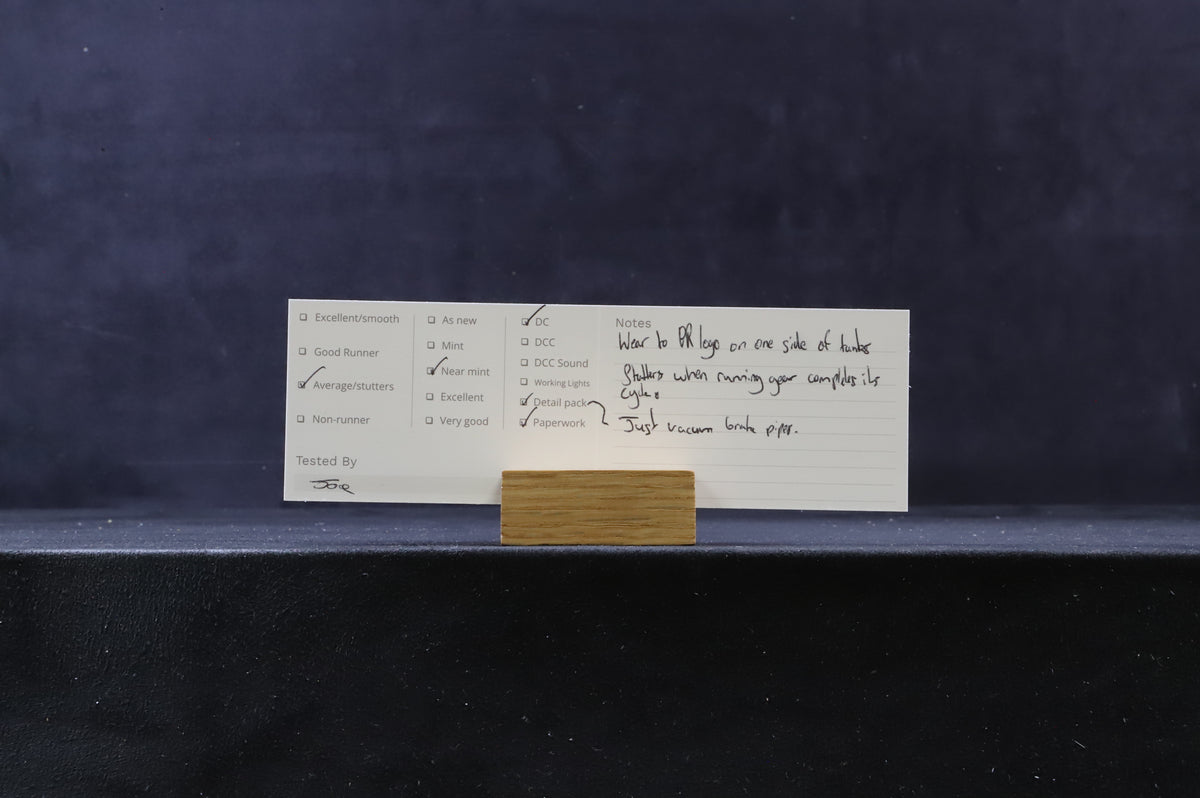 Excellent/smooth
Good Runner
Average/stutters
Non-runner
Tested By
Joe
As new
Mint
Near mint
Excellent
Very good
DC
DCC
DCC Sound
Working Lights
Detail pack
Paperwork
Notes
Wear to BR logo on one side of tanks
Stutters when running gear completes its
cycle.
Just vacuum brake pipes.